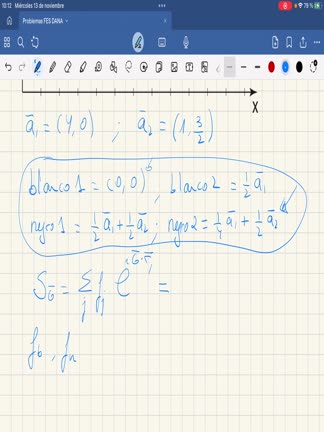 10:12 Miércoles 13 de noviembre 79 %
Problemas FES DANA
x
a̅₁ = (4,0) ; a̅₂ = (1, 3/2)
blanco 1 = (0,0) , blanco 2 = 1/2 a̅₁
negro 1 = 1/2 a̅₁ + 1/2 a̅₂ ; negro 2 = 1/4 a̅₁ + 1/2 a̅₂
S_G̅ = Σ_j f_j e^{iG̅·r̅_j} =
f_b , f_n